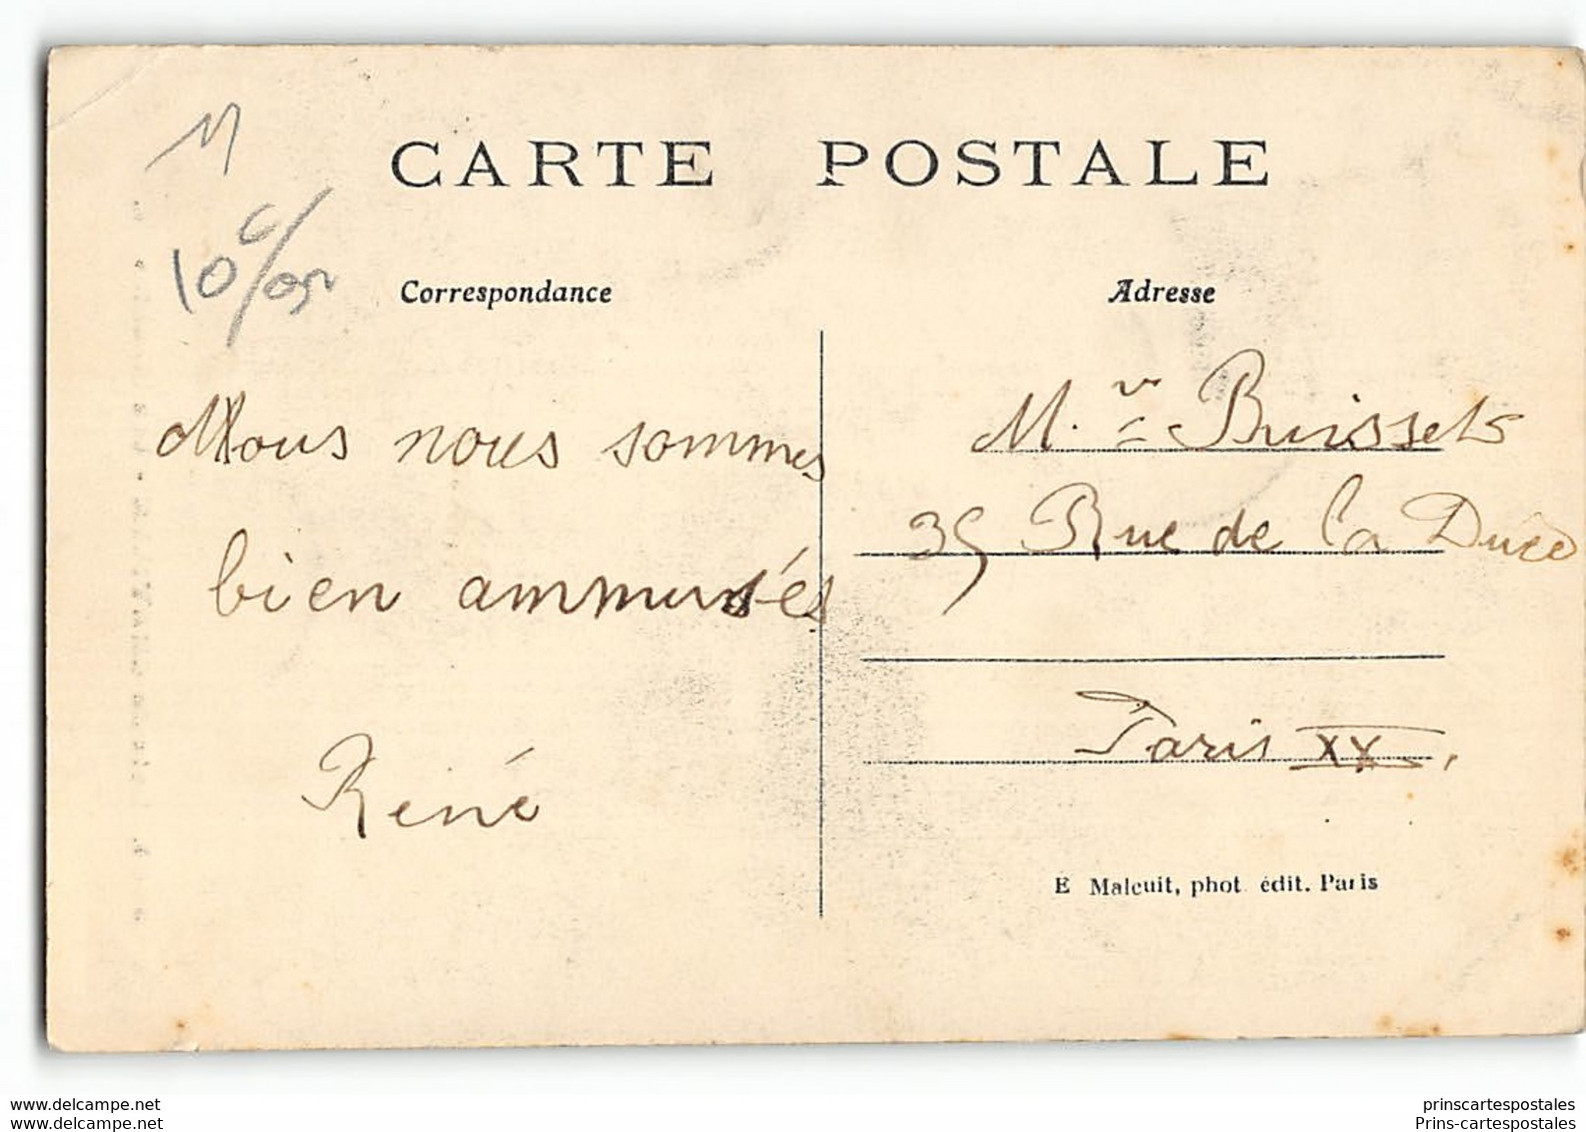 CARTE POSTALE
M
10 c/
Correspondance
Nous nous sommes
bien ammusés
René
Adresse
M. ve Buissets
35 Rue de la Duée
Paris XX.
E Malcuit, phot. édit. Paris
www.delcampe.net
prinscartespostales
www.delcampe.net
Prins-cartespostales